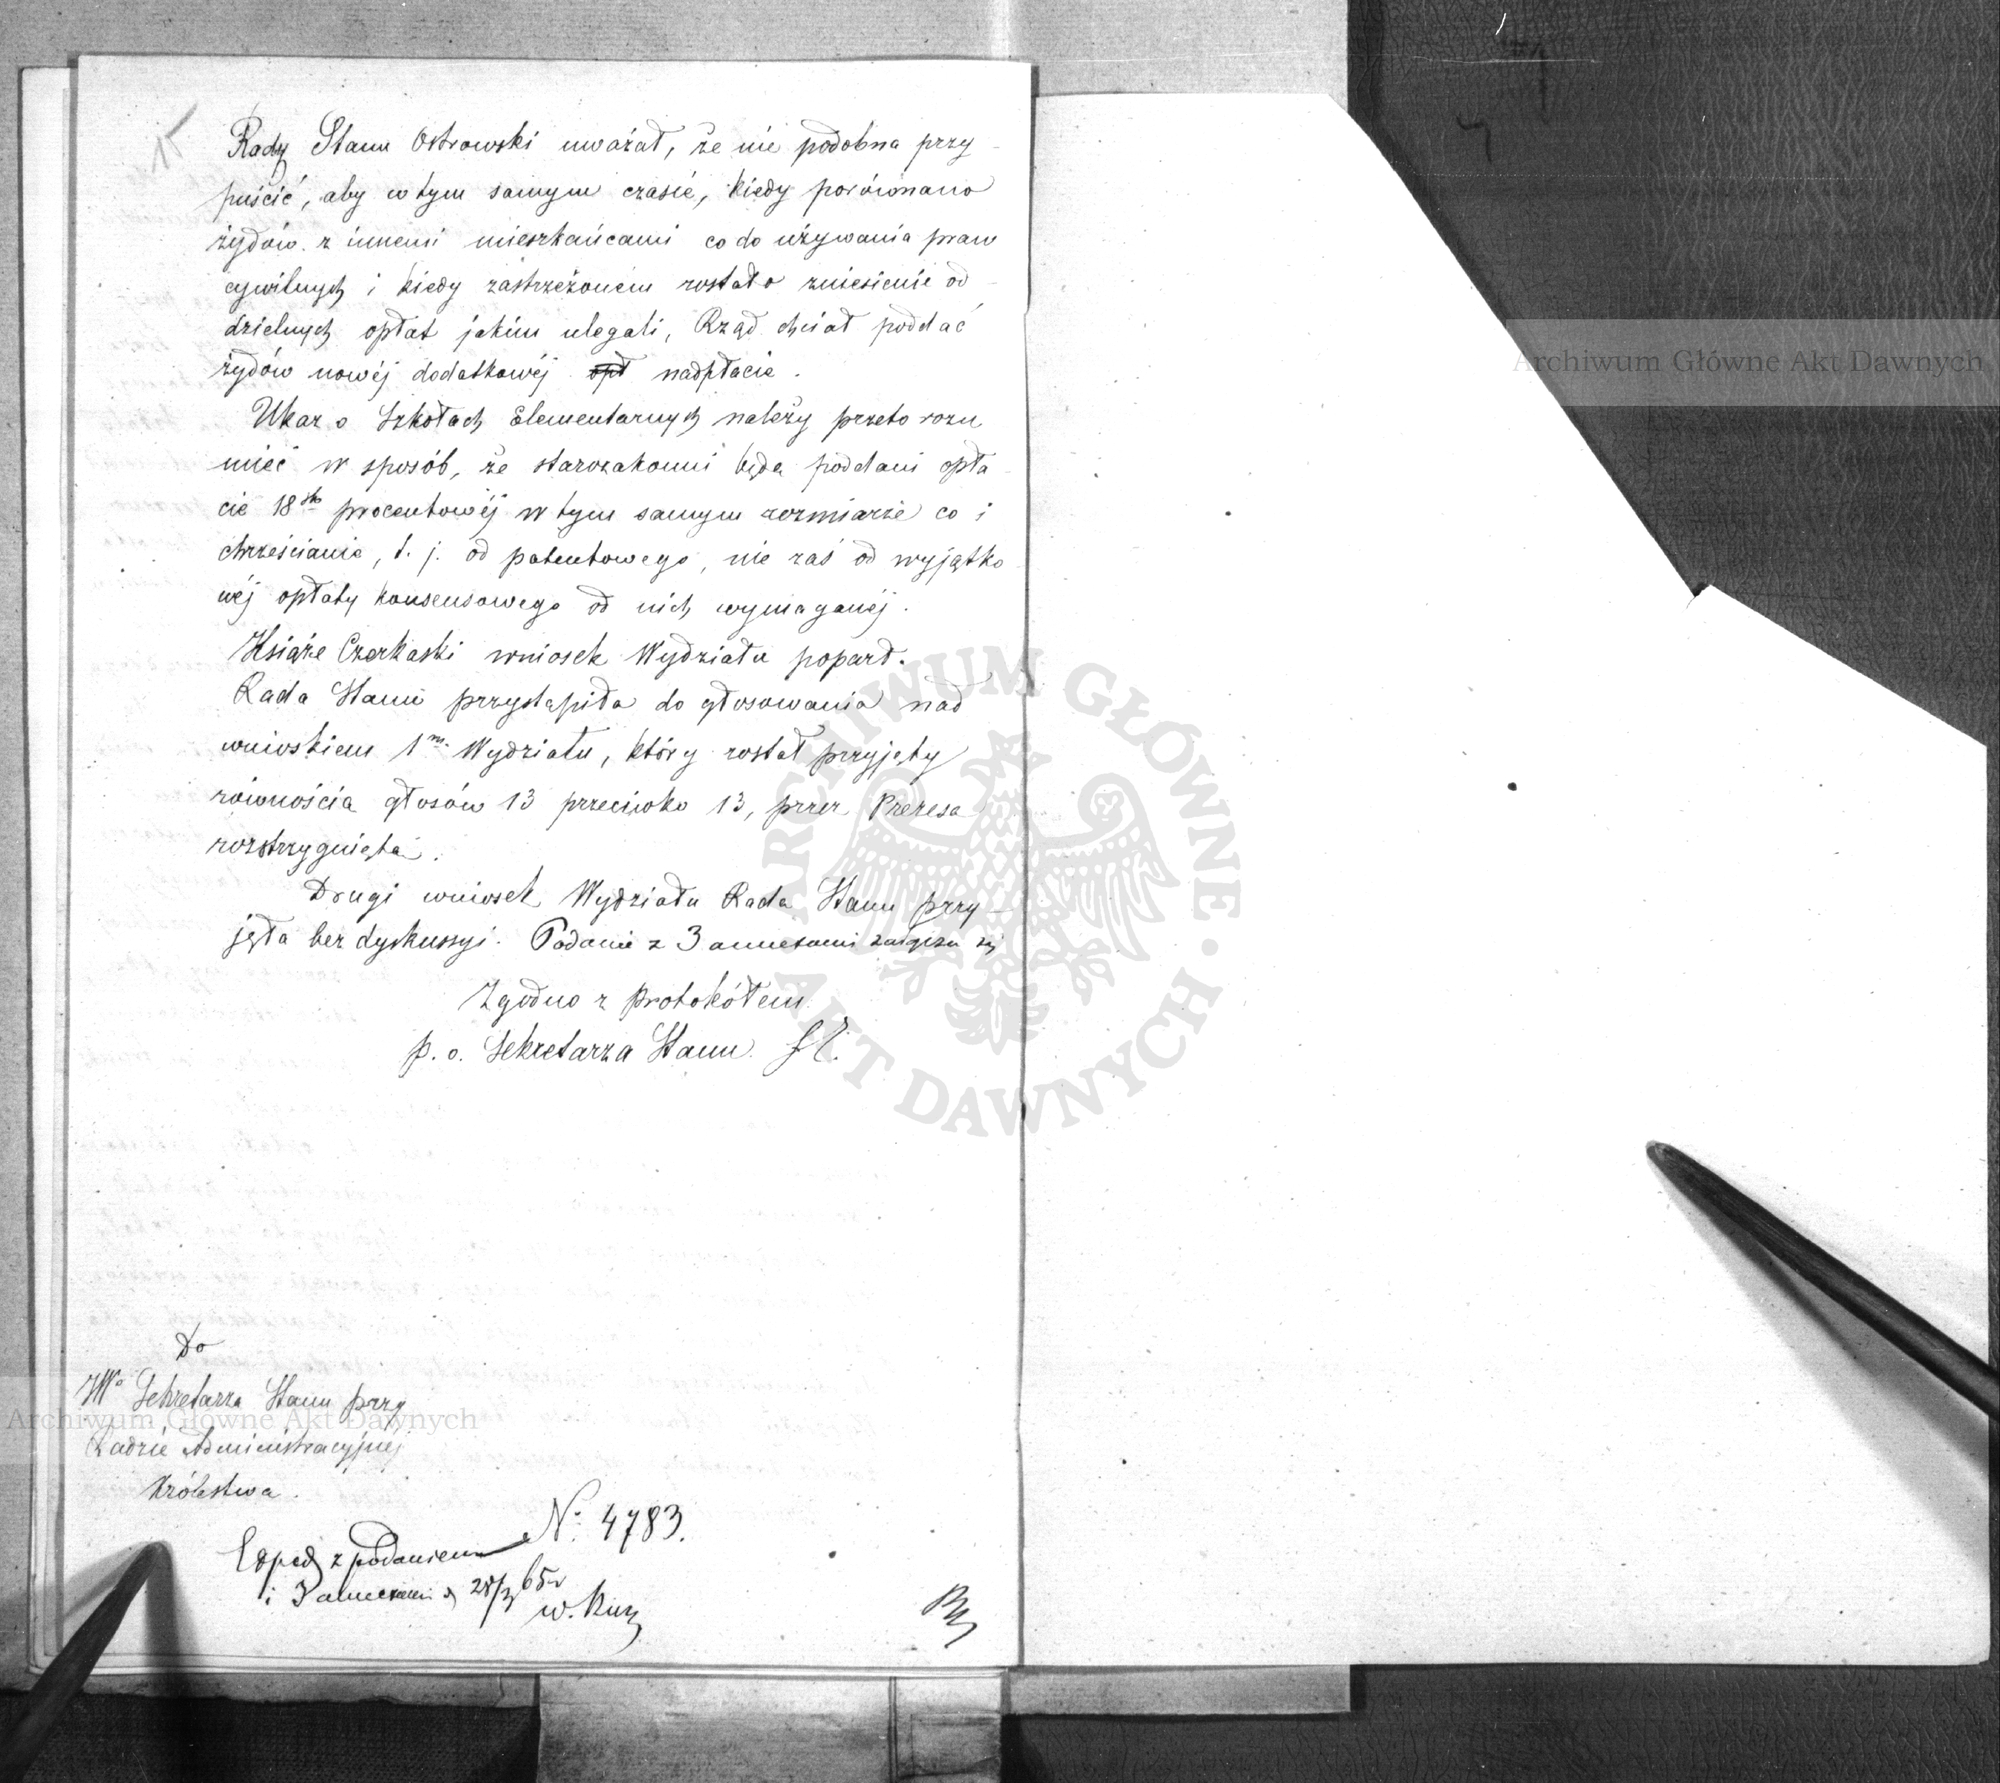 15
Rady Stanu Ostrowski uważał, że nie podobna przy-
puścić, aby w tym samym czasie, kiedy porównano
żydów z innemi mieszkańcami co do używania praw
cywilnych i kiedy zastrzeżonem zostało zniesienie od-
dzielnych opłat jakim ulegali, Rząd chciał poddać
żydów nowéj dodatkowéj opł nadpłacie.
Ukaz o Szkołach Elementarnych należy przeto rozu
mieć w sposób, że starozakonni będą poddani opła
cie 18sto procentowéj w tym samym rozmiarze co i
chrześcianie, t. j. od patentowego, nie zaś od wyjątko
wéj opłaty konsensowego od nich wymaganéj.
Książe Czerkaski wniosek Wydziału poparł.
Rada Stanu przystąpiła do głosowania nad
wnioskiem 1m Wydziału, który został przyjęty
równością głosów 13 przeciwko 13, przez Prezesa
rozstrzygniętą.
Drugi wniosek Wydziału Rada Stanu przy-
jęła bez dyskussyi. Podanie z 3 annexami załącza się
Zgodno z Protokółem
p. o. Sekretarza Stanu
Do
JWo Sekretarza Stanu przy
Radzie Administracyjnej
Królestwa.
No 4783.
Exped z podaniem
i 3 annexami d 28/3 65r
Archiwum Główne Akt Dawnych
Archiwum Główne Akt Dawnych
ARCHIWUM GŁÓWNE · AKT DAWNYCH ·